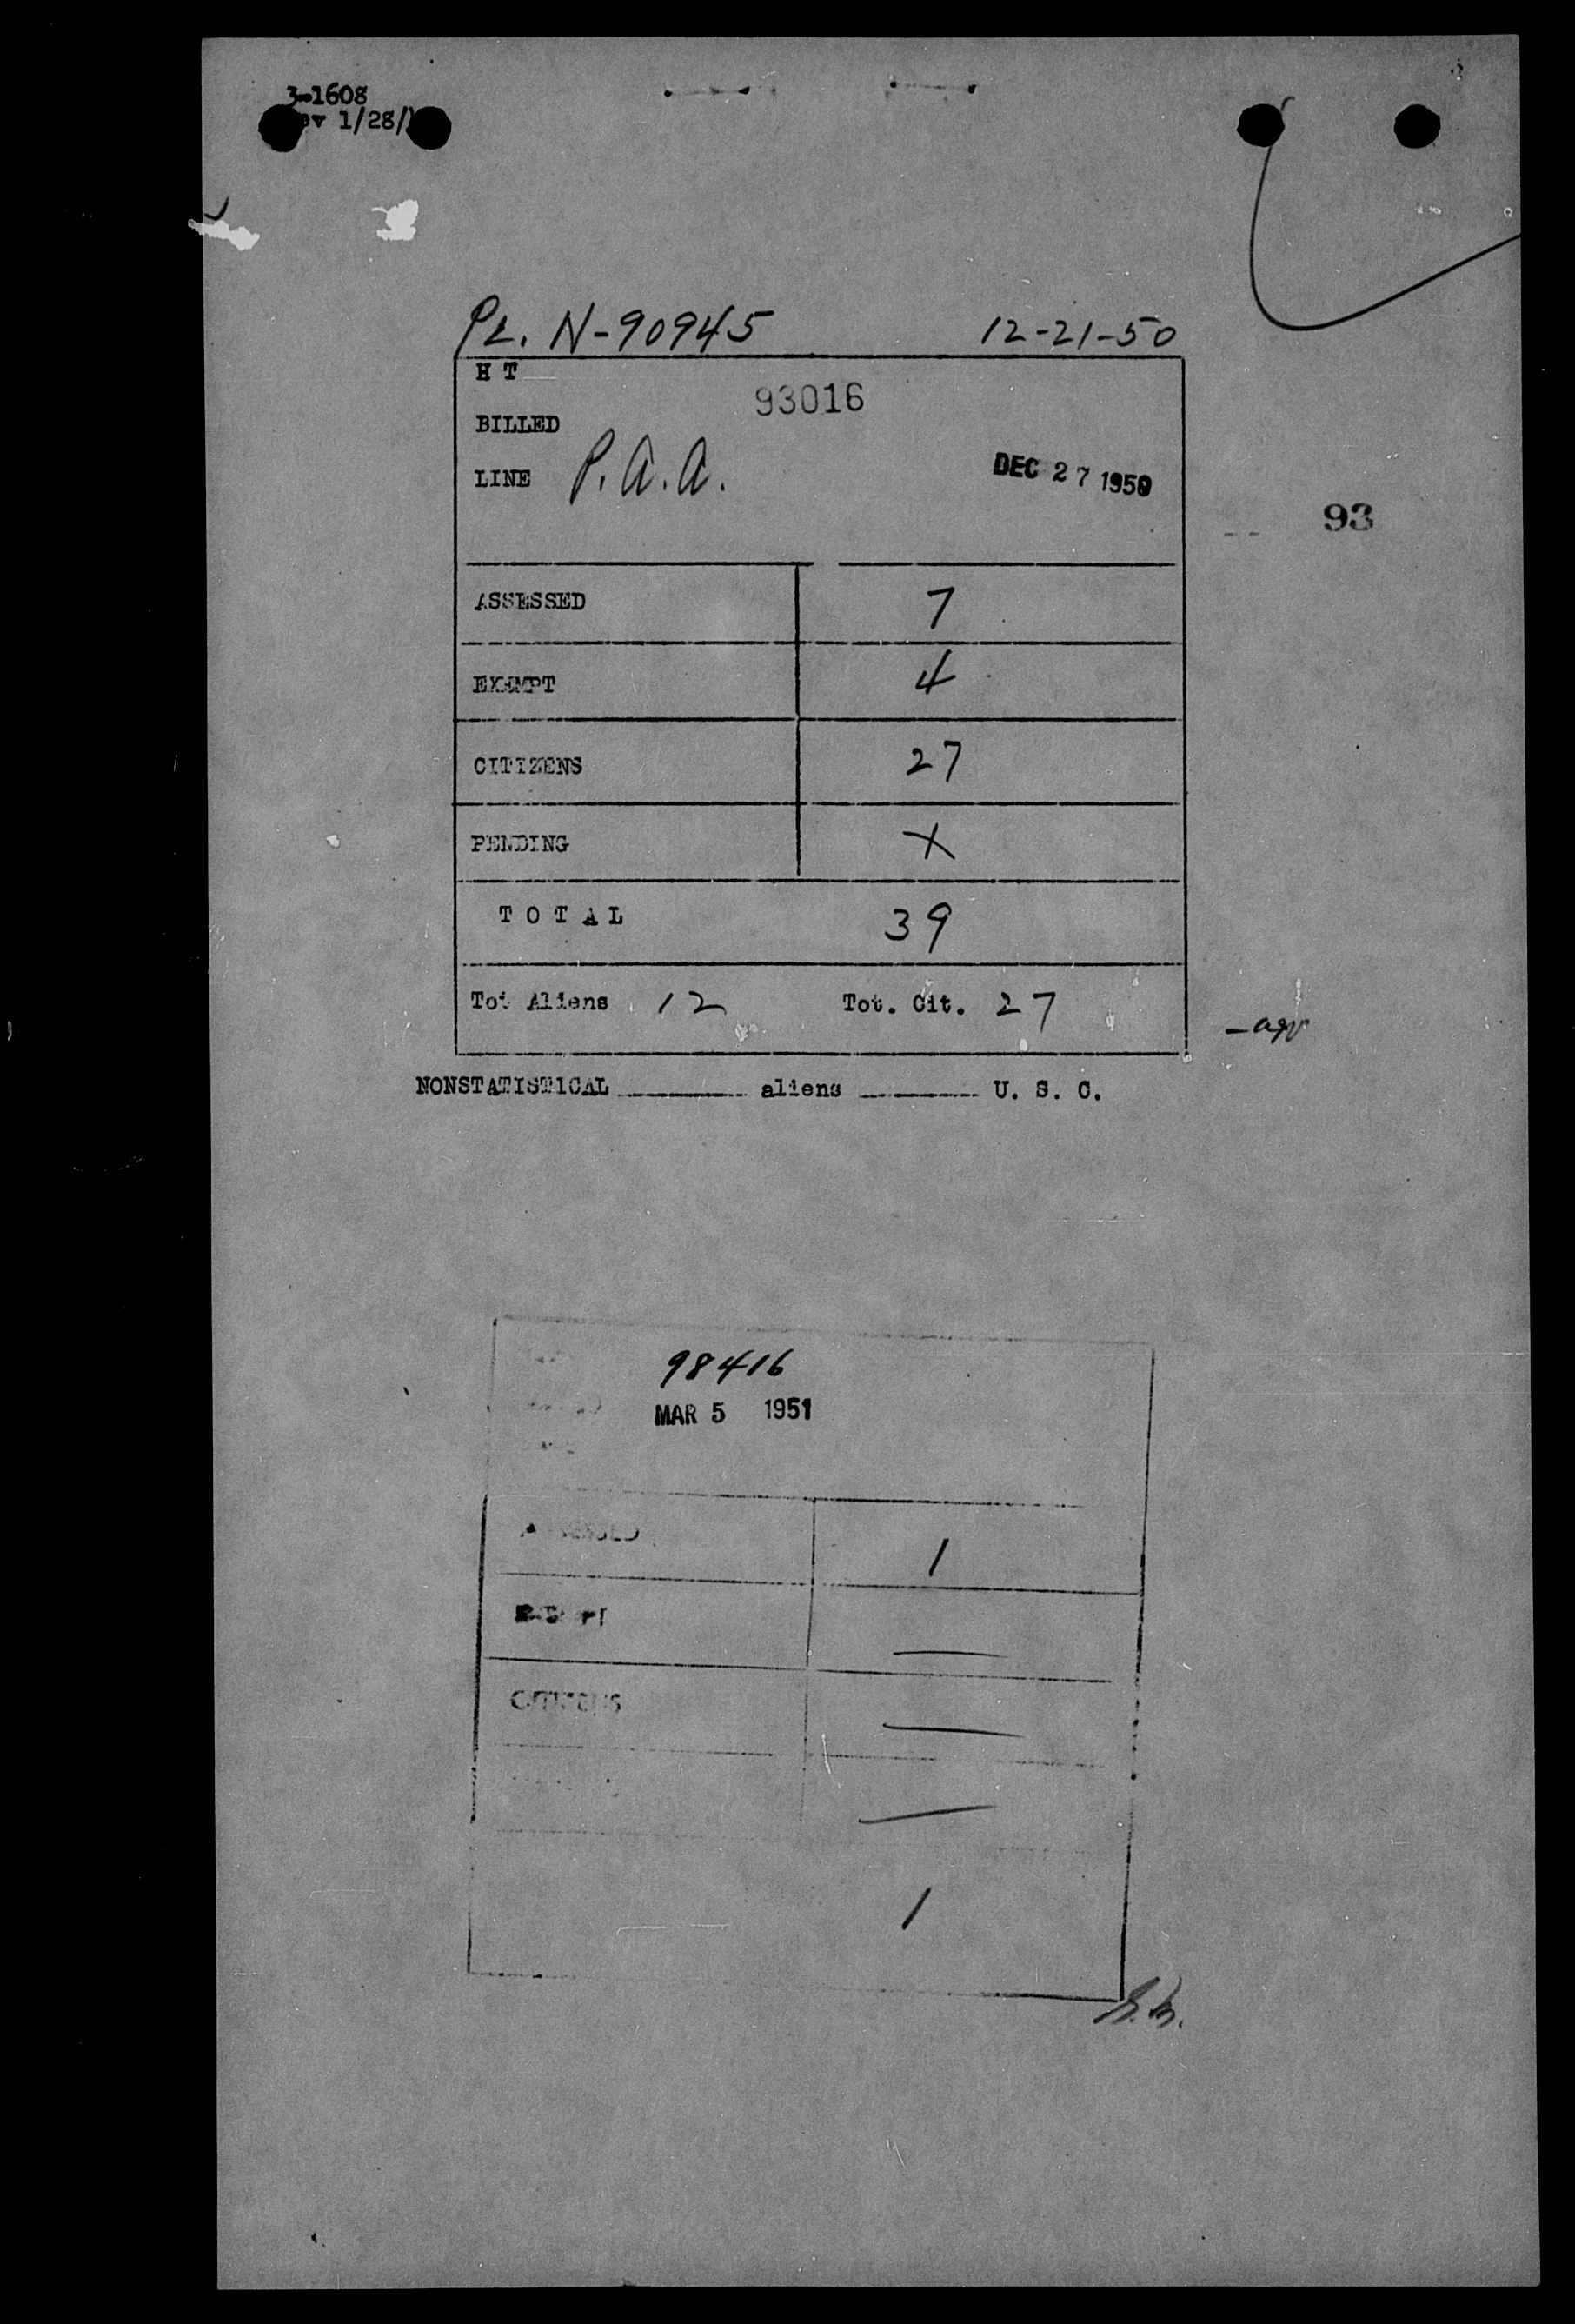 3-1608
1/28/
PL. N-90945 12-21-50
H T
93016
BILLED
LINE P.A.A. DEC 27 1950
93
ASSESSED 7
EXEMPT 4
CITIZENS 27
PENDING X
TOTAL 39
Tot Aliens 12 Tot. Cit. 27
NONSTATISTICAL aliens U. S. C.
98416
MAR 5 1951
ASSESSED 1
EXEMPT —
CITIZENS —
—
1